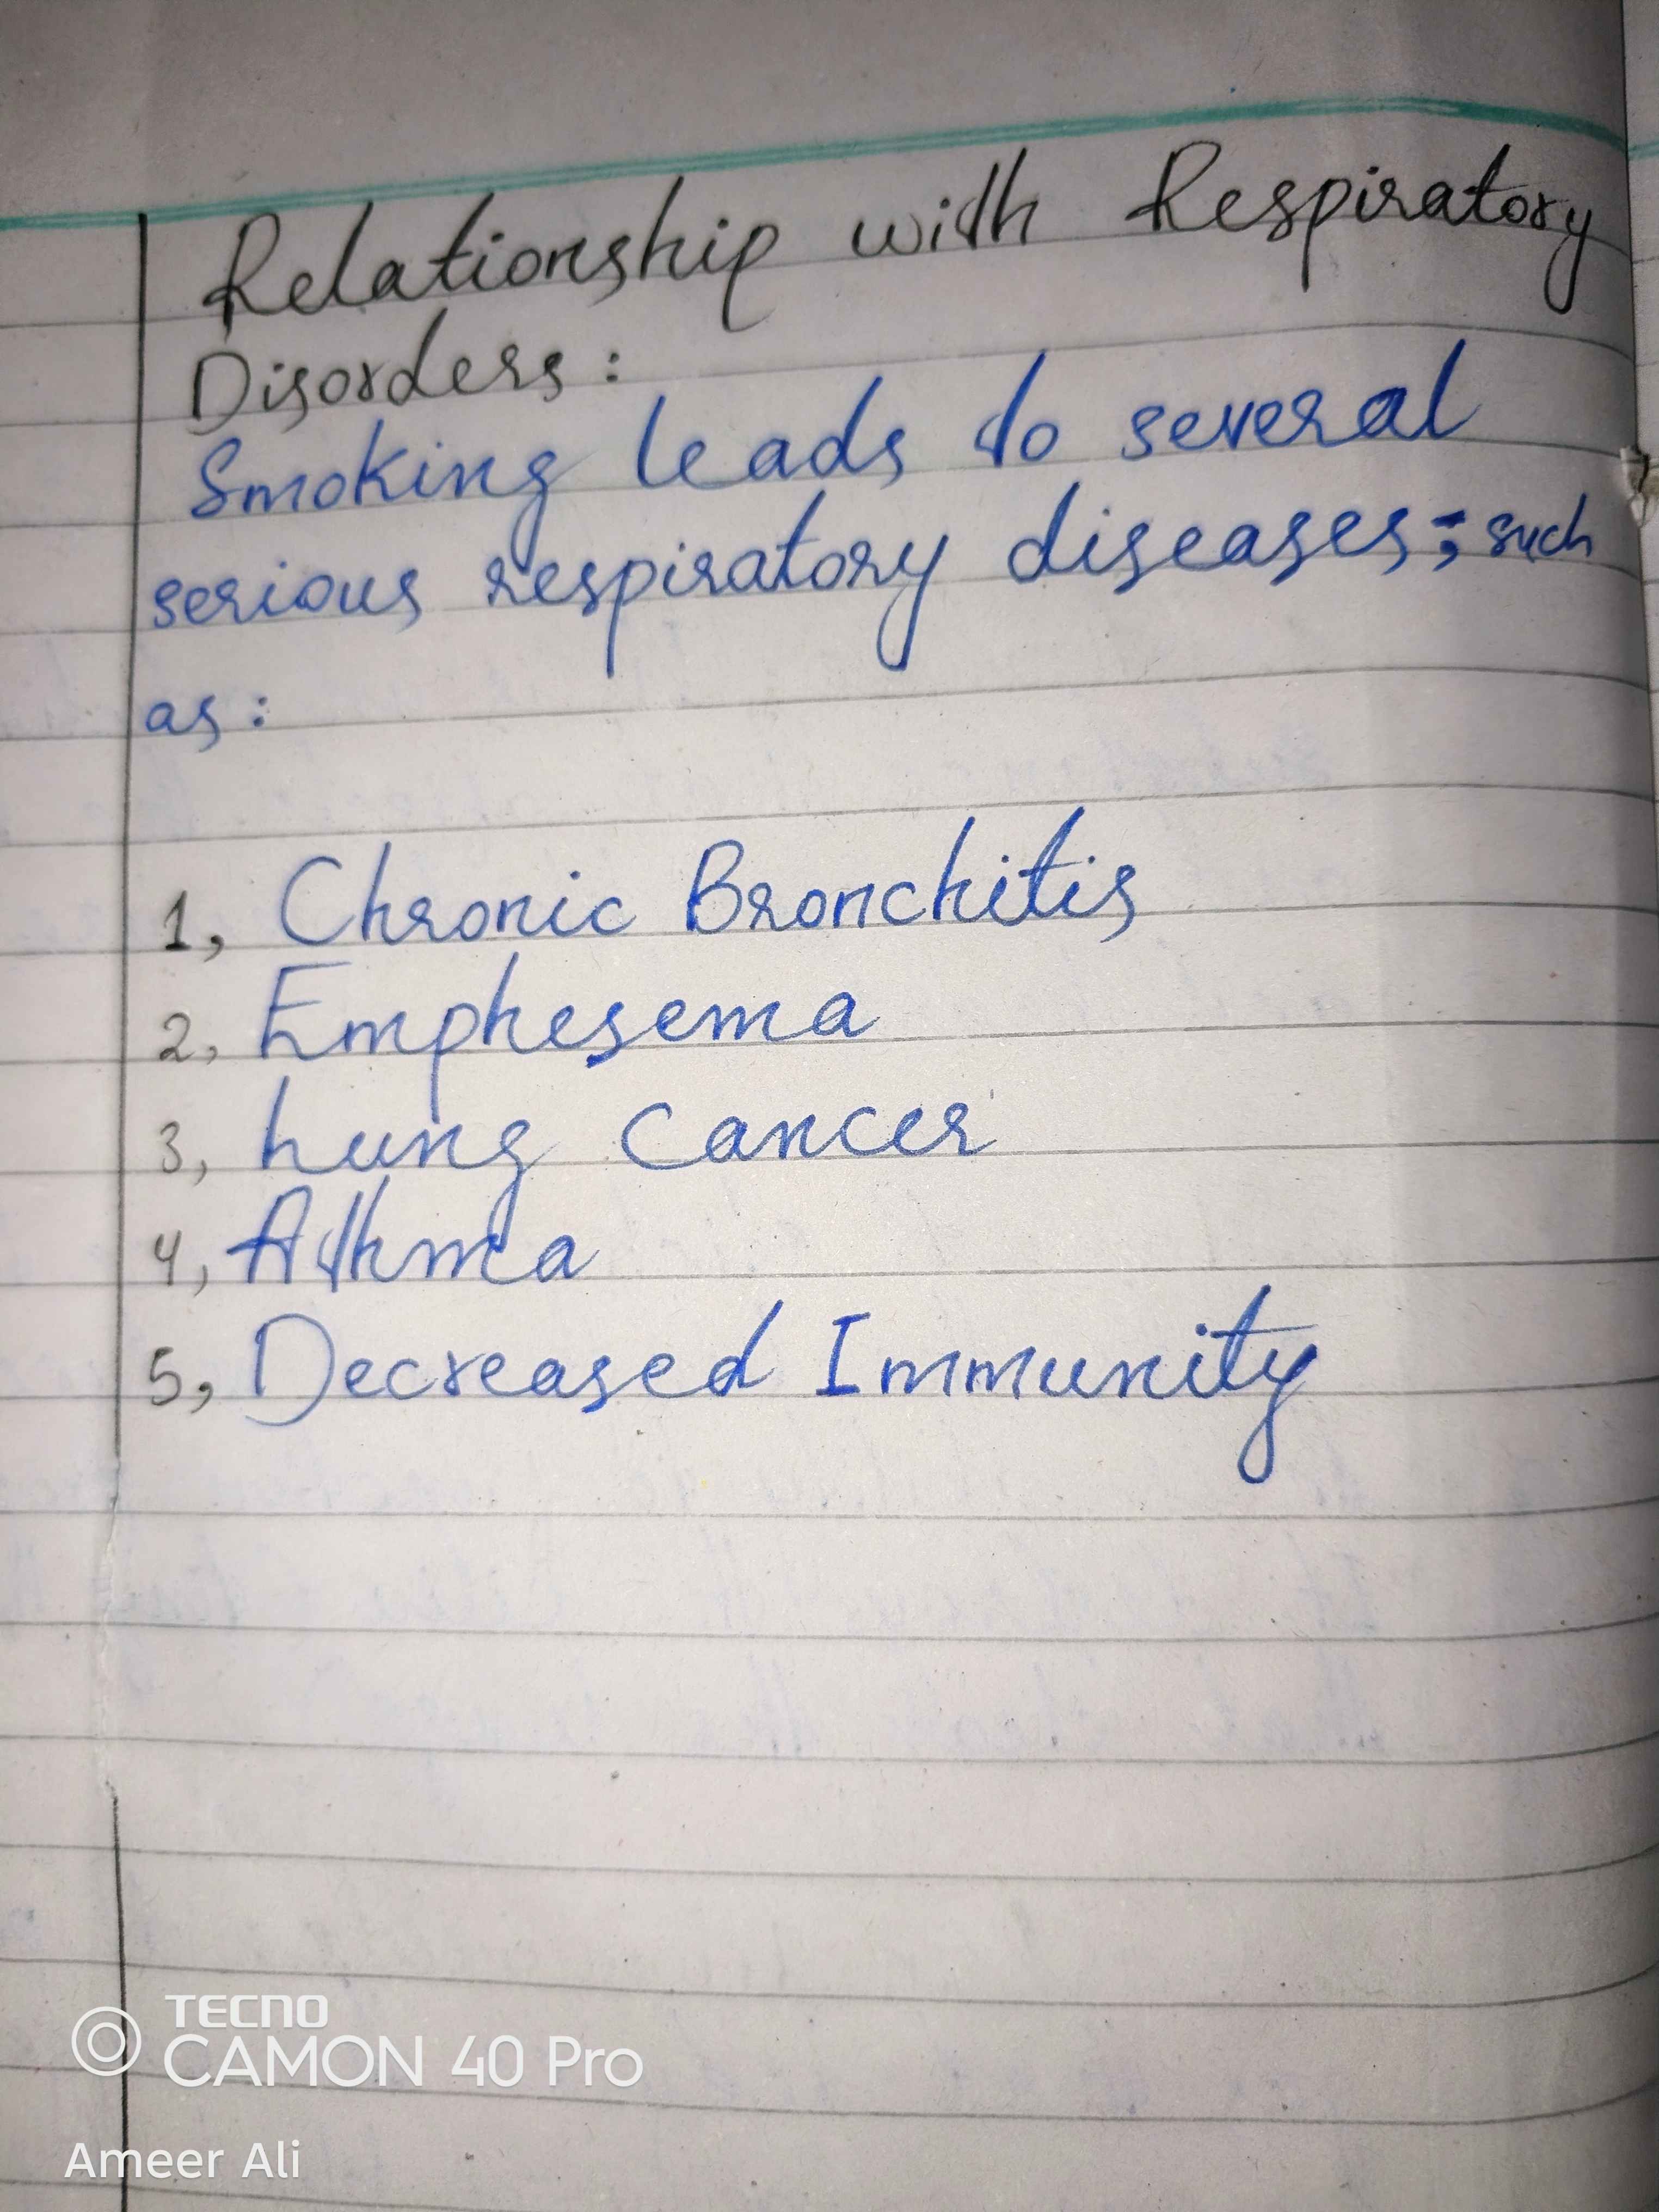 Relationship with Respiratory
Disorders:
Smoking leads to several
serious respiratory diseases; such
as:
1, Chronic Bronchitis
2, Emphesema
3, Lung Cancer
4, Athma
5, Decreased Immunity
TECNO
CAMON 40 Pro
Ameer Ali